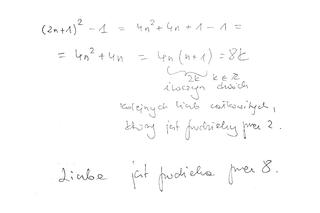 (2n+1)² - 1 = 4n² + 4n + 1 - 1 =
= 4n² + 4n = 4n (n+1) = 8k
2k k ∈ Z
iloczyn dwóch
kolejnych liczb całkowitych,
który jest podzielny przez 2.
Liczba jest podzielna przez 8.